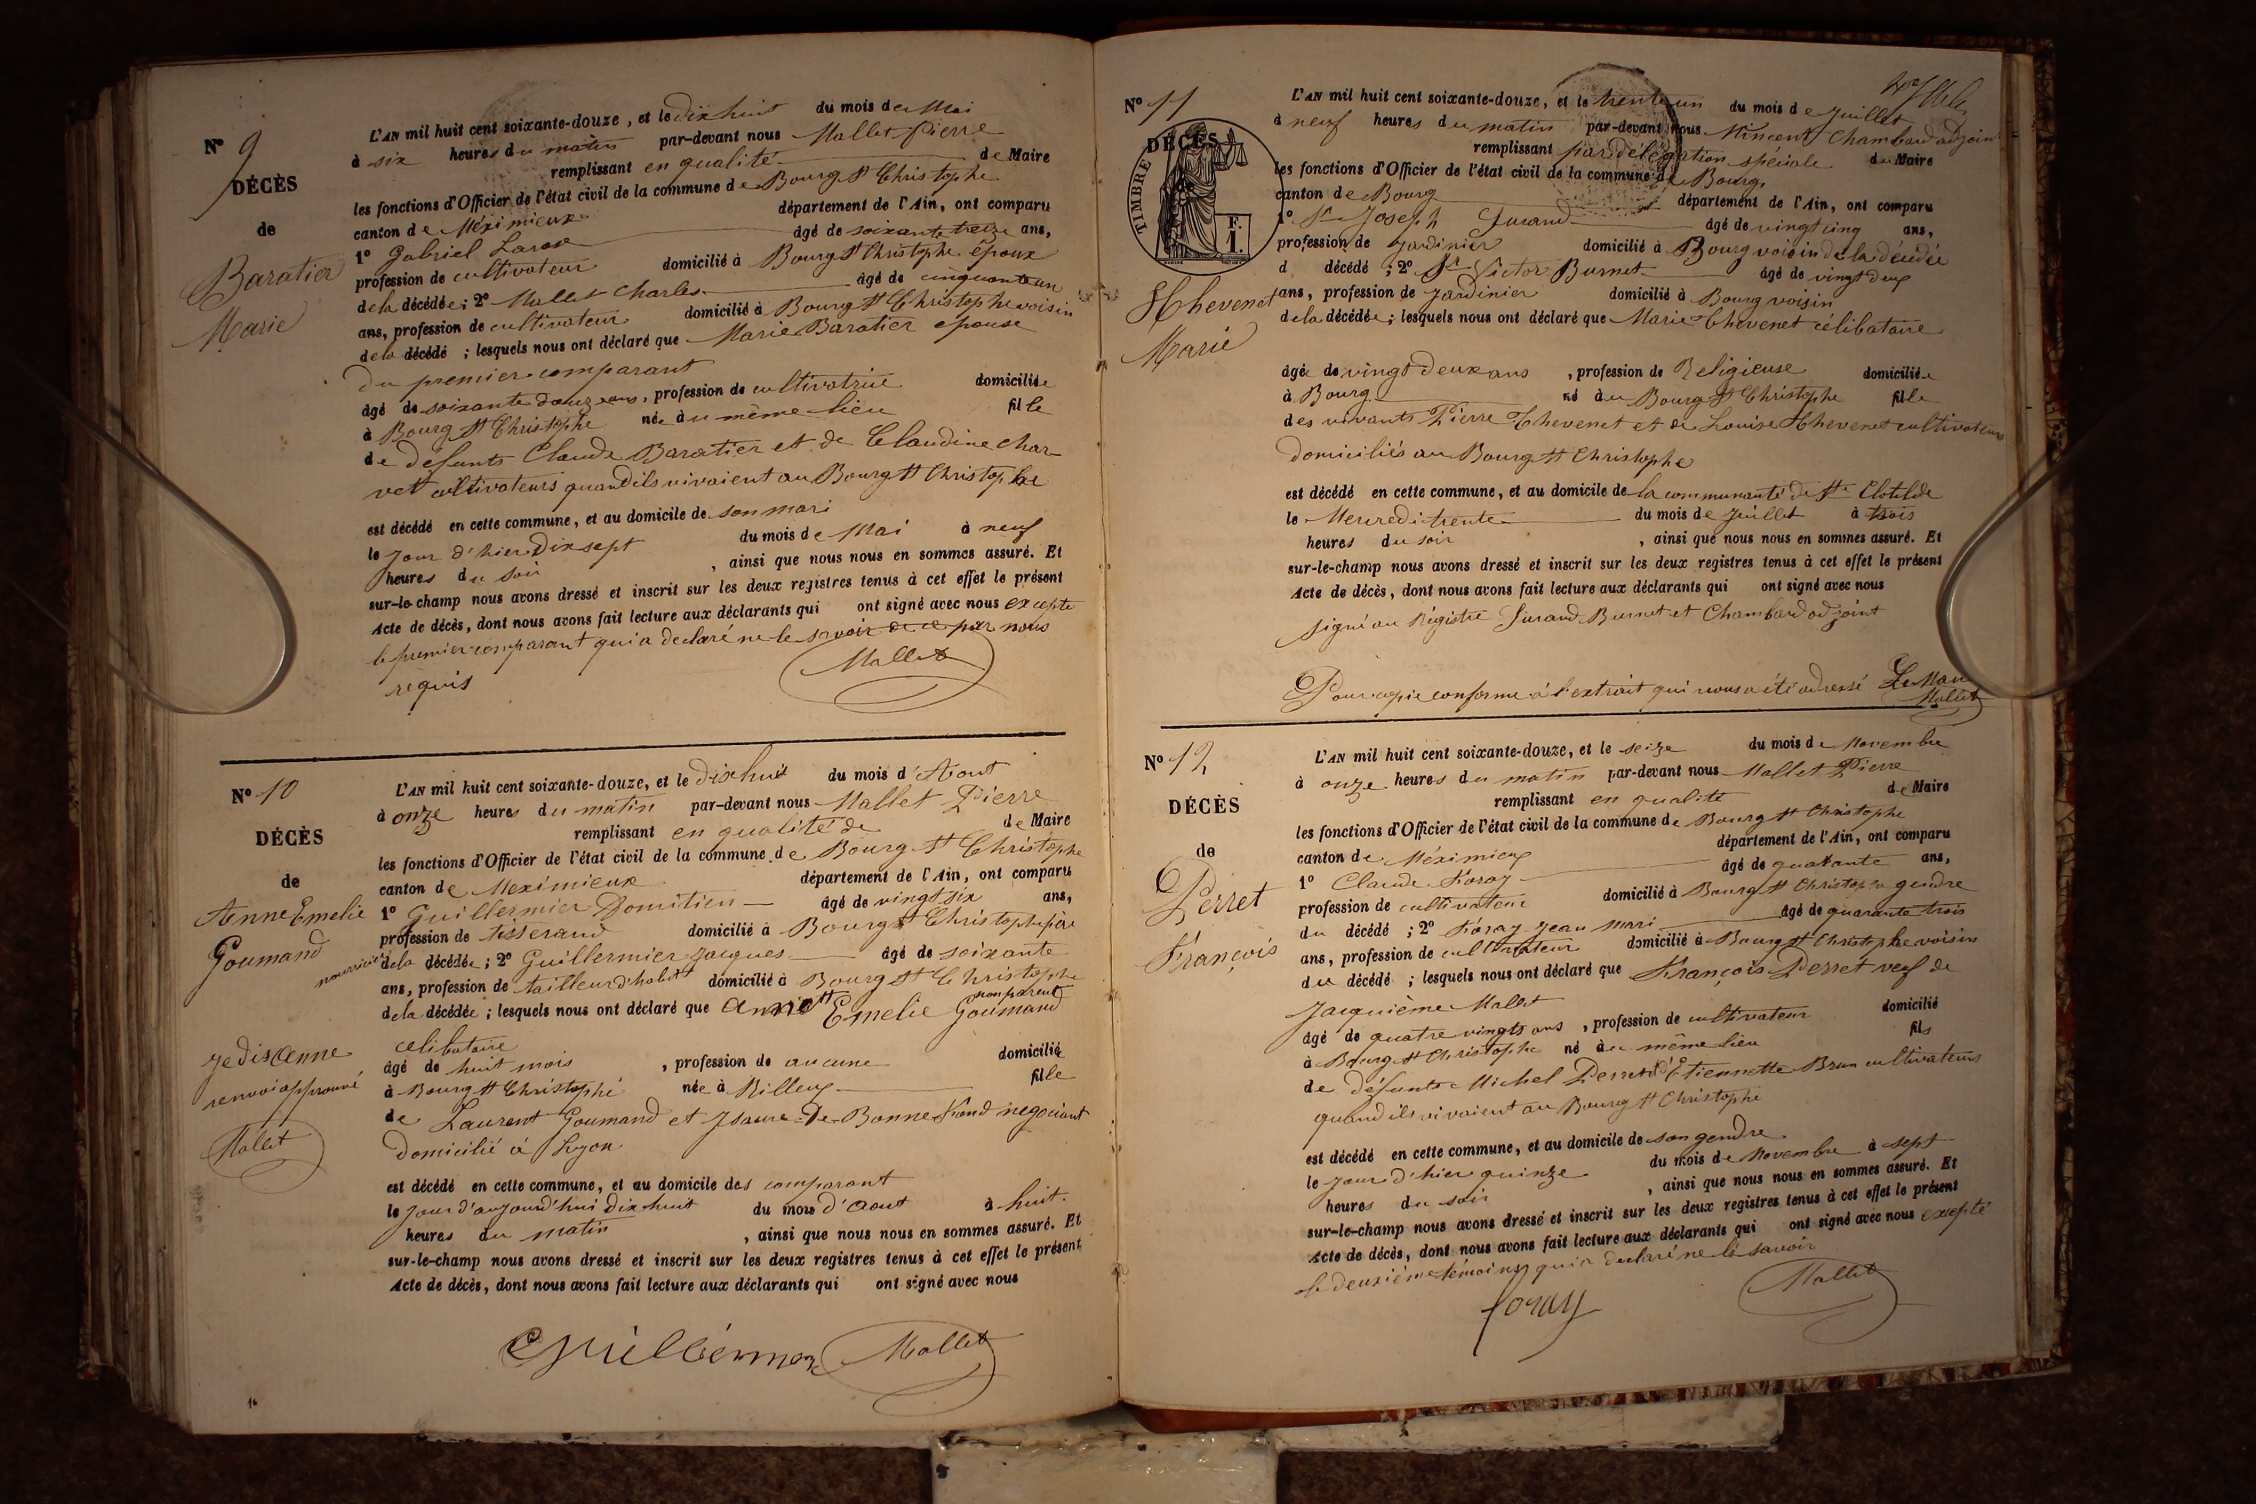 N° 9
DÉCÈS
de
Baratier
Marie
L'AN mil huit cent soixante-douze, et le dix huit du mois de Mai
à six heures du matin par-devant nous Mallet Pierre
remplissant en qualité de Maire
les fonctions d'Officier de l'état civil de la commune de Bourg St Christophe
canton de Méximieux département de l'Ain, ont comparu
1° Gabriel Larose âgé de soixante treize ans,
profession de cultivateur domicilié à Bourg St Christophe époux
de la décédée; 2° Mallet Charles âgé de cinquante un
ans, profession de cultivateur domicilié à Bourg St Christophe voisin
de la décédé ; lesquels nous ont déclaré que Marie Baratier epouse
du premier comparant
âgé de soixante douze ans, profession de cultivatrice domiciliée
à Bourg St Christophe née au même lieu fille
de défunts Claude Baratier et de Claudine Char-
vet cultivateurs quand ils vivaient au Bourg St Christophe
est décédé en cette commune, et au domicile de son mari
le jour d'hier dix sept du mois de Mai à neuf
heures du soir , ainsi que nous nous en sommes assuré. Et
sur-le-champ nous avons dressé et inscrit sur les deux registres tenus à cet effet le présent
Acte de décès, dont nous avons fait lecture aux déclarants qui ont signé avec nous excepte
le premier comparant qui a declaré ne le savoir de ce par nous
requis
Mallet
N° 10
DÉCÈS
de
Anne Emelie
Goumand
nourricier
je dis Anne
renvoi approuvé
Mallet
L'AN mil huit cent soixante-douze, et le dix huit du mois d'Aout
à onze heures du matin par-devant nous Mallet Pierre
remplissant en qualité de de Maire
les fonctions d'Officier de l'état civil de la commune de Bourg St Christophe
canton de Meximieux département de l'Ain, ont comparu
1° Guillermier Domitien âgé de vingt six ans,
profession de tisserand domicilié à Bourg St Christophe père
de la décédée; 2° Guillermier Jacques âgé de soixante
ans, profession de tailleur d'habit domicilié à Bourg St Christophe
non parent
de la décédée; lesquels nous ont déclaré que Anne Emelie Goumand
celibataire
âgé de huit mois , profession de aucune domicilié
à Bourg St Christophe née à Rillieux fille
de Laurent Goumand et Isaure De Bonne Fond négociant
domicilié à Lyon
est décédé en cette commune, et au domicile des comparant
le jour d'aujourd'hui dix huit du mois d'Aout à huit
heures du matin , ainsi que nous nous en sommes assuré. Et
sur-le-champ nous avons dressé et inscrit sur les deux registres tenus à cet effet le présent
Acte de décès, dont nous avons fait lecture aux déclarants qui ont signé avec nous
Mallet
N° 11
DÉCÈS
TIMBRE
F.
1.
Thevenet
Marie
L'AN mil huit cent soixante-douze, et le trente un du mois de Juillet
à neuf heures du matin par-devant nous Vincent Chambard adjoint
remplissant par délégation spéciale du Maire
les fonctions d'Officier de l'état civil de la commune de Bourg
canton de Bourg département de l'Ain, ont comparu
1° Sr Joseph Jurand âgé de vingt cinq ans,
profession de Jardinier domicilié à Bourg voisin de la décédée
d décédé ; 2° Sr Victor Burnet âgé de vingt deux
ans, profession de Jardinier domicilié à Bourg voisin
de la décédée; lesquels nous ont déclaré que Marie Thevenet célibataire
âgée de vingt deux ans , profession de Religieuse domiciliée
à Bourg né au Bourg St Christophe fille
des vivants Pierre Thevenet et de Louise Thevenet cultivateurs
domiciliés au Bourg St Christophe
est décédé en cette commune, et au domicile de la communauté de Ste Clotilde
le Mercredi trente du mois de Juillet à trois
heures du soir , ainsi que nous nous en sommes assuré. Et
sur-le-champ nous avons dressé et inscrit sur les deux registres tenus à cet effet le présent
Acte de décès, dont nous avons fait lecture aux déclarants qui ont signé avec nous
signé au Régistre Jurand Burnet et Chambard adjoint
Pour copie conforme à l'extrait qui nous a été adressé Le Maire
Mallet
N° 12
DÉCÈS
de
Perret
François
L'AN mil huit cent soixante-douze, et le seize du mois de Novembre
à onze heures du matin par-devant nous Mallet Pierre
remplissant en qualité de Maire
les fonctions d'Officier de l'état civil de la commune de Bourg St Christophe
canton de Méximieux département de l'Ain, ont comparu
1° Claude Foray âgé de quarante ans,
profession de cultivateur domicilié à Bourg St Christophe gendre
du décédé ; 2° Foray Jean Mari âgé de quarante trois
ans, profession de cultivateur domicilié à Bourg St Christophe voisin
du décédé ; lesquels nous ont déclaré que François Perret veuf de
Jacquième Mallet
âgé de quatre vingts ans , profession de cultivateur domicilié
à Bourg St Christophe né au même lieu fils
de défunts Michel Perret et d'Etiennette Brun cultivateurs
quand ils vivaient au Bourg St Christophe
est décédé en cette commune, et au domicile de son gendre
le jour d'hier quinze du mois de Novembre à sept
heures du soir , ainsi que nous nous en sommes assuré. Et
sur-le-champ nous avons dressé et inscrit sur les deux registres tenus à cet effet le présent
Acte de décès, dont nous avons fait lecture aux déclarants qui ont signé avec nous excepté
le deuxième témoins qui a declaré ne le savoir
foray
Mallet